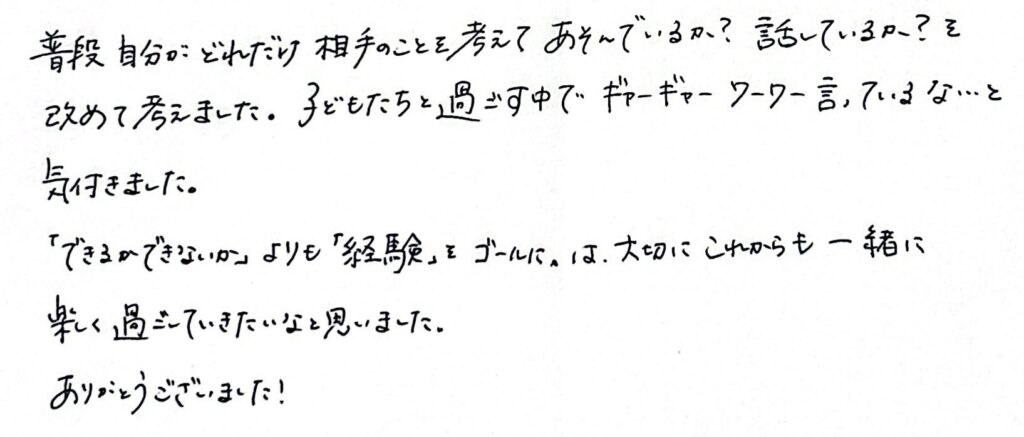 普段 自分が どれだけ 相手のことを考えて あそんでいるか? 話しているか? を
改めて考えました。子どもたちと過ごす中で ギャーギャー ワーワー言っているな…と
気付きました。
「できるかできないか」よりも「経験」を ゴールに。は、大切に これからも 一緒に
楽しく 過ごしていきたいなと思いました。
ありがとうございました!